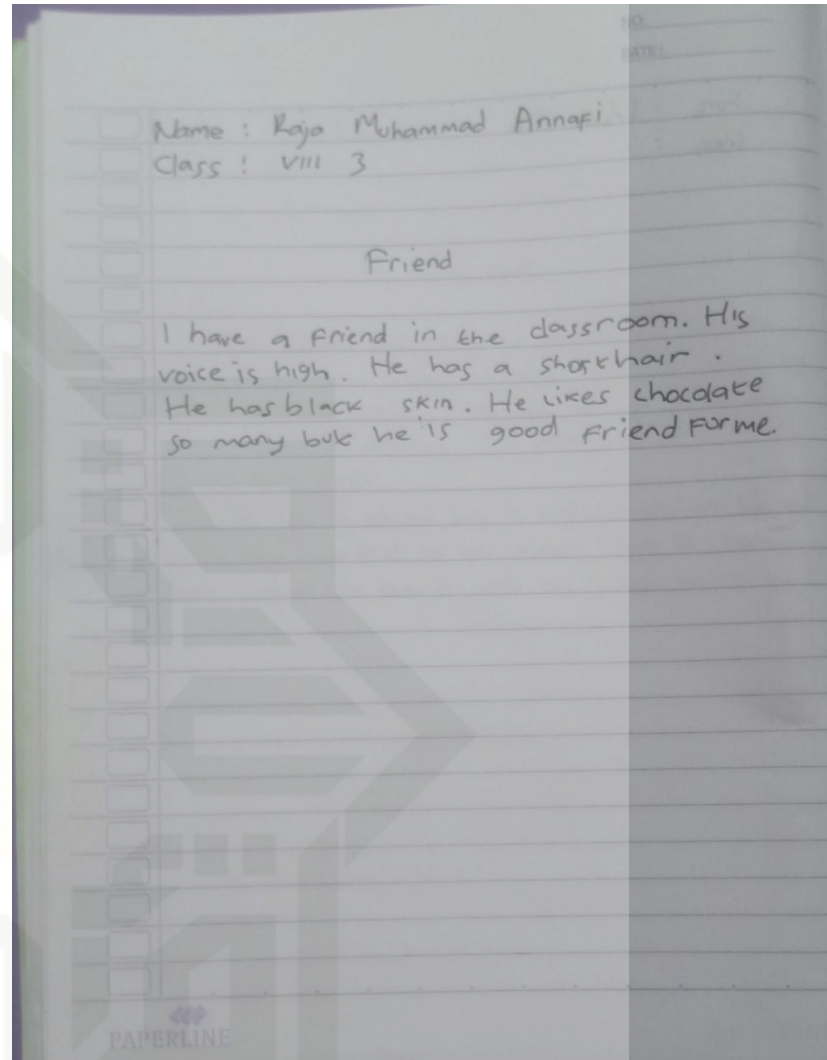 NO.
DATE:
Name : Raja Muhammad Annafi
Class : VIII 3
Friend
I have a friend in the classroom. His
voice is high. He has a short hair.
He has black skin. He likes chocolate
so many but he is good friend for me.
PAPERLINE